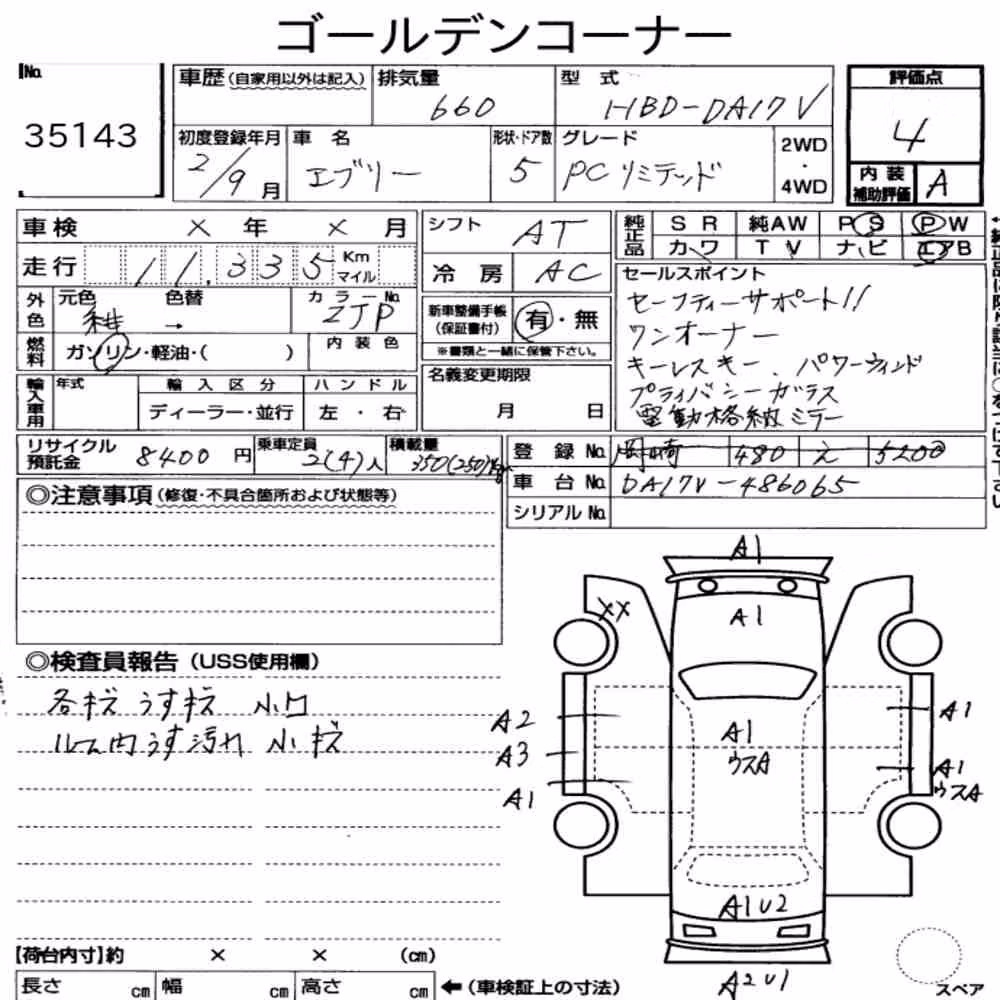 ゴールデンコーナー
No.
35143
車歴(自家用以外は記入)
排気量
660
型式
HBD-DA17V
評価点
4
初度登録年月
2/9月
車名
エブリー
形状・ドア数
5
グレード
PCリミテッド
2WD
・
4WD
内装
補助評価
A
車検 × 年 × 月
走行 11,335 Km
マイル
シフト
AT
冷房
AC
純正品
SR 純AW PS PW
カワ TV ナビ エアB
外色
元色 色替
紺 →
カラーNo.
ZJP
燃料
ガソリン・軽油・( )
内装色
新車整備手帳
(保証書付)
有・無
※書類と一緒に保管下さい。
セールスポイント
セーフティーサポート!!
ワンオーナー
キーレスキー、パワーウィンド
プライバシーガラス
電動格納ミラー
輸入車用
年式
輸入区分
ディーラー・並行
ハンドル
左・右
名義変更期限
月 日
リサイクル
預託金
8400円
乗車定員
2(4)人
積載量
350(250)Kg
登録No.
岡崎 480 え 5200
車台No.
DA17V-486065
シリアルNo.
◎注意事項(修復・不具合箇所および状態等)
◎検査員報告(USS使用欄)
各キズ うすキズ 小凹
ルーム内うす汚れ 小キズ
A1
XX
A1
A2
A1
A1
A3
ウスA
A1
ウスA
A1
A1U2
A2U1
スペア
【荷台内寸】約 × × (cm)
長さ cm 幅 cm 高さ cm ←(車検証上の寸法)